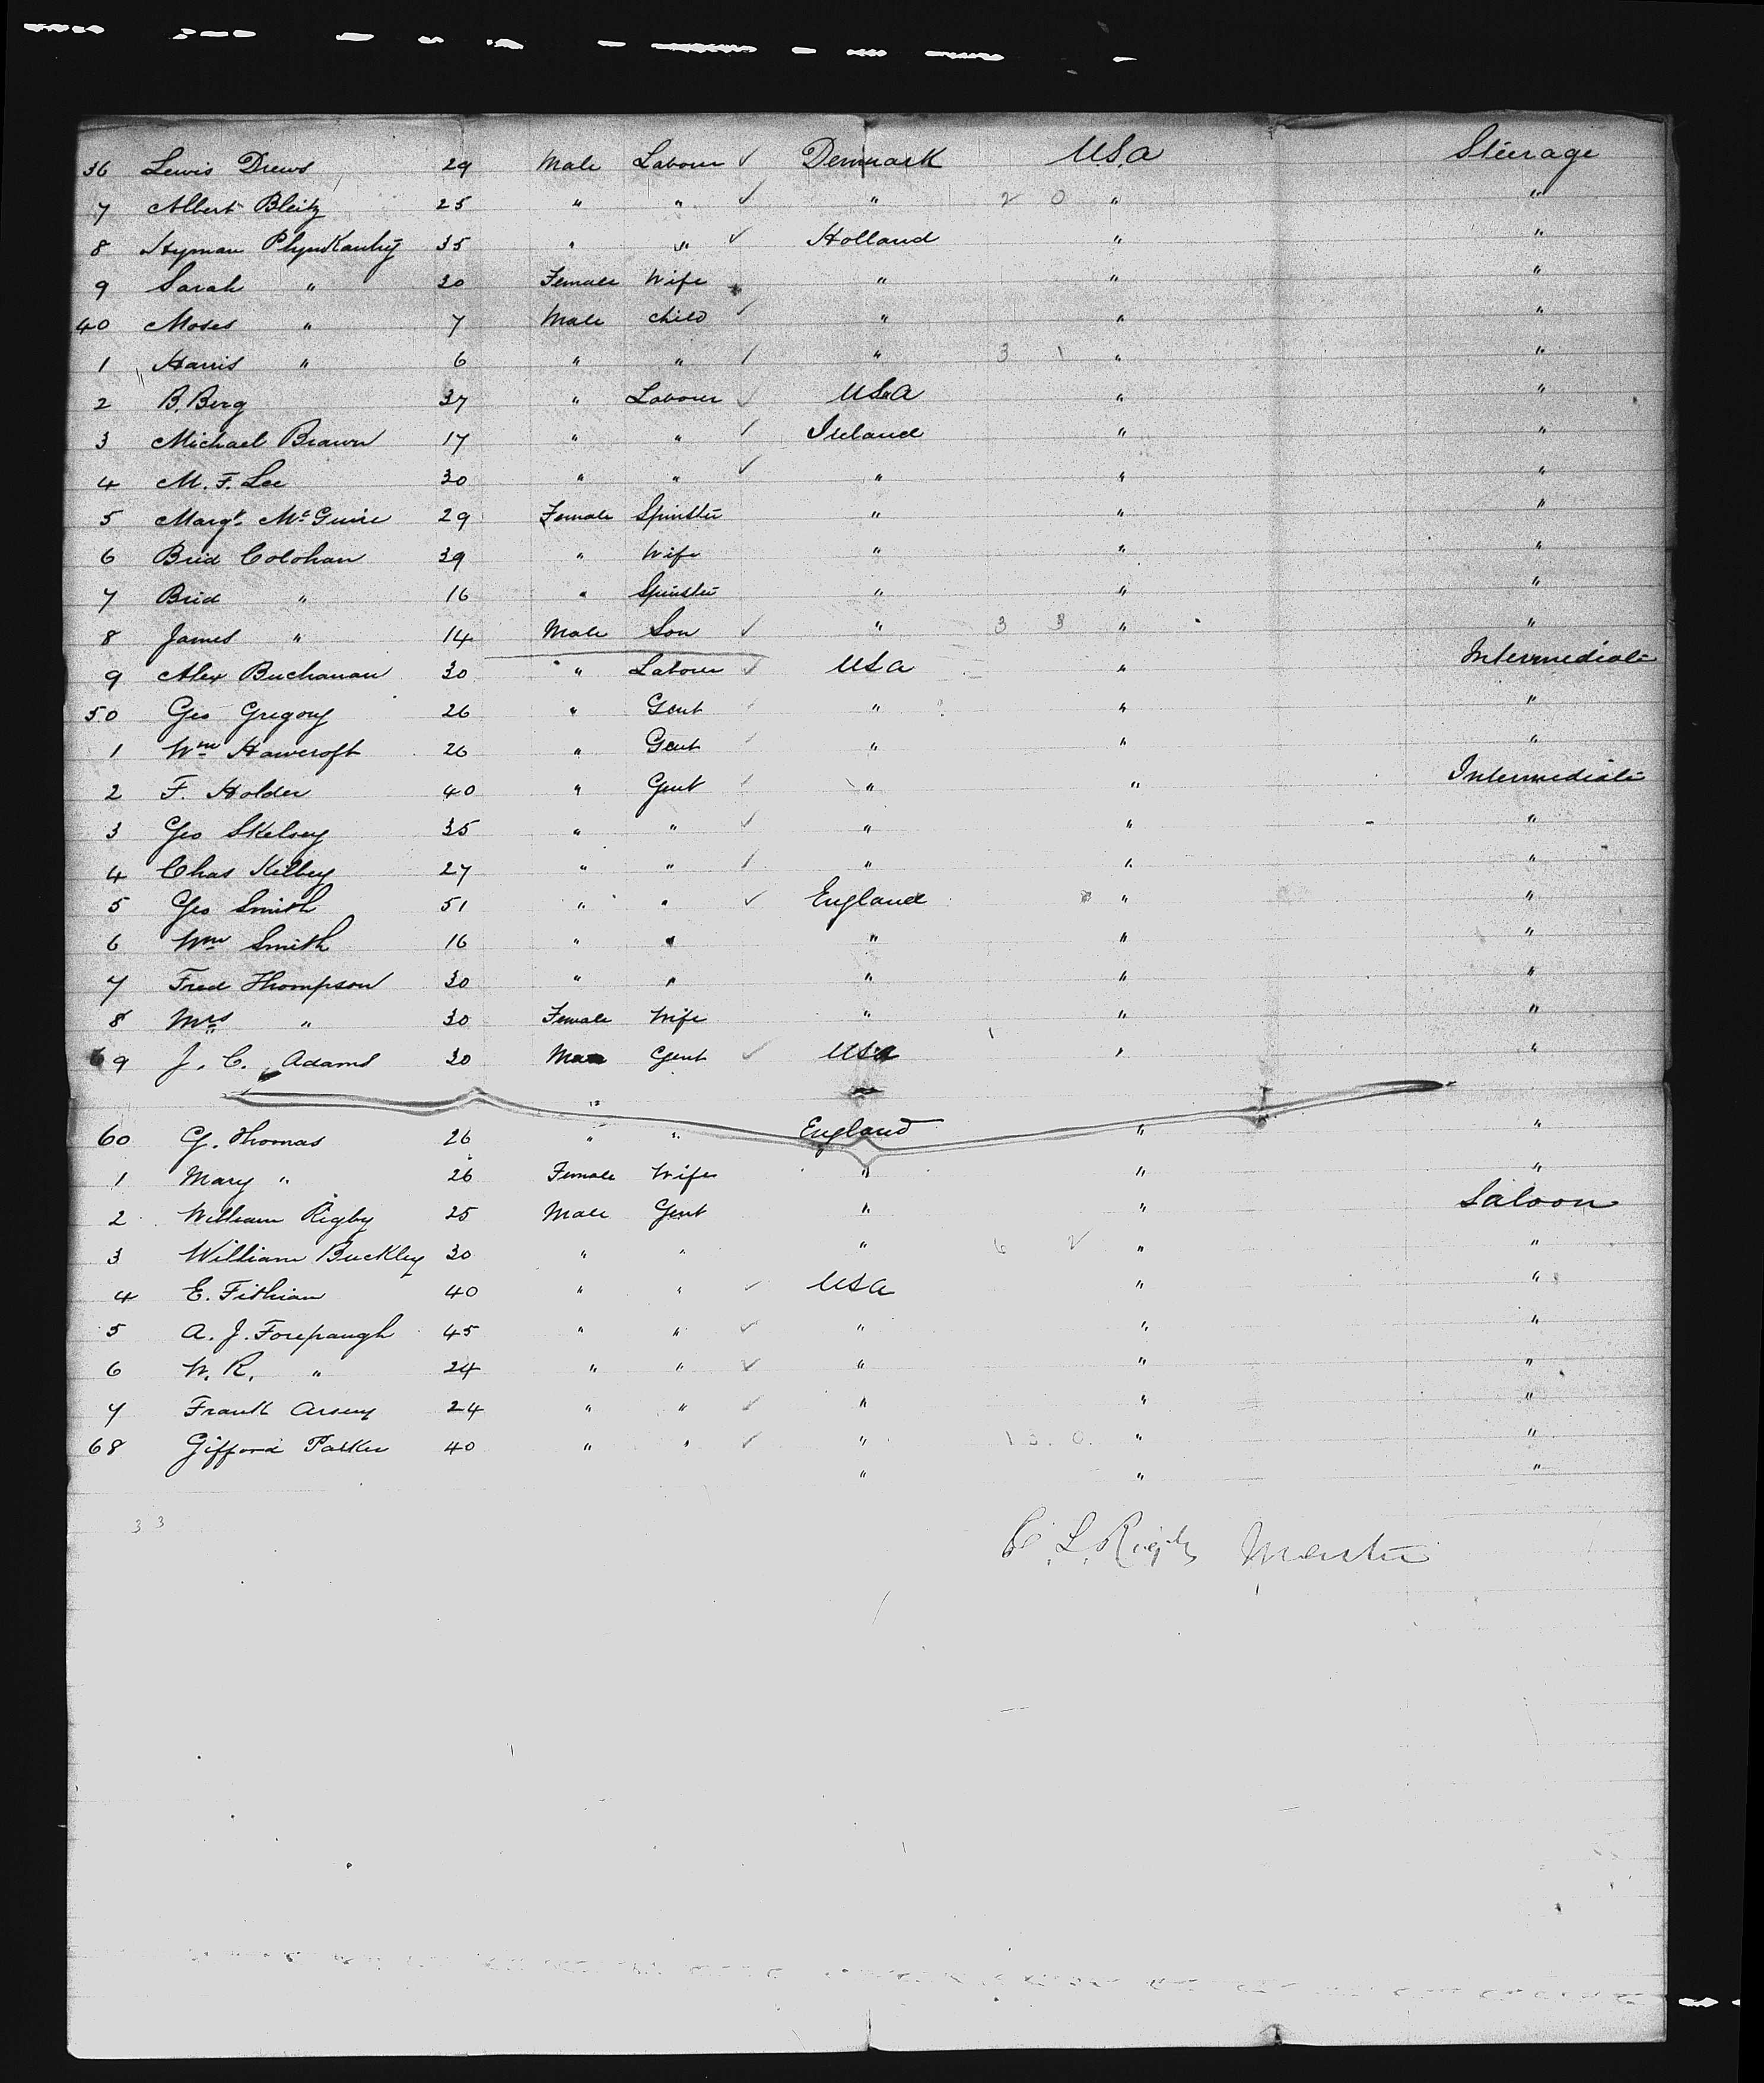 36 Lewis Drews 29 Male Labour ✓ Denmark U.S.A Steerage
7 Albert Bleitz 25 " " ✓ " 2 0 " "
8 Hyman 35 " " ✓ Holland " "
9 Sarah " 30 Female Wife " " "
40 Moses " 7 Male child ✓ " " "
1 Harris " 6 " " / " 3 1 " "
2 B. Berg 37 " Labour ✓ USA " "
3 Michael Brawn 17 " " / Ireland " "
4 M. F. Lee 30 " " ✓ " " "
5 Margt. McGuire 29 Female Spinster " " "
6 Brid Colohan 39 " Wife " " "
7 Brid " 16 " Spinster " " "
8 James " 14 Male Son ✓ " 3 3 " "
9 Alex Buchanan 30 " Labour ✓ USA " Intermediate
50 Geo Gregory 26 " Gent ✓ " " "
1 Wm Hawcroft 26 " Gent ✓ " " "
2 F. Holder 40 " Gent ✓ " " Intermediate
3 Geo Skelsey 35 " " ✓ " " "
4 Chas Kelbey 27 " " / " " "
5 Geo Smith 51 " " ✓ England " "
6 Wm Smith 16 " " " " "
7 Fred Thompson 30 " " " " "
8 Mrs " 30 Female Wife " " "
9 J. C. Adams 30 Gent ✓ USA " "
60 G. Thomas 26 " " England " "
1 Mary " 26 Female Wife " " "
2 William Rigby 25 Male Gent " " Saloon
3 William Buckley 30 " " " 6 2 " "
4 E. Fithian 40 " " ✓ USA " "
5 A. J. Forepaugh 45 " " ✓ " " "
6 W. R. " 24 " " ✓ " " "
7 Frank 24 " " ✓ " " "
68 Gifford Parker 40 " " ✓ " 13. 0. " "
" " "
33
L. Rigby Master